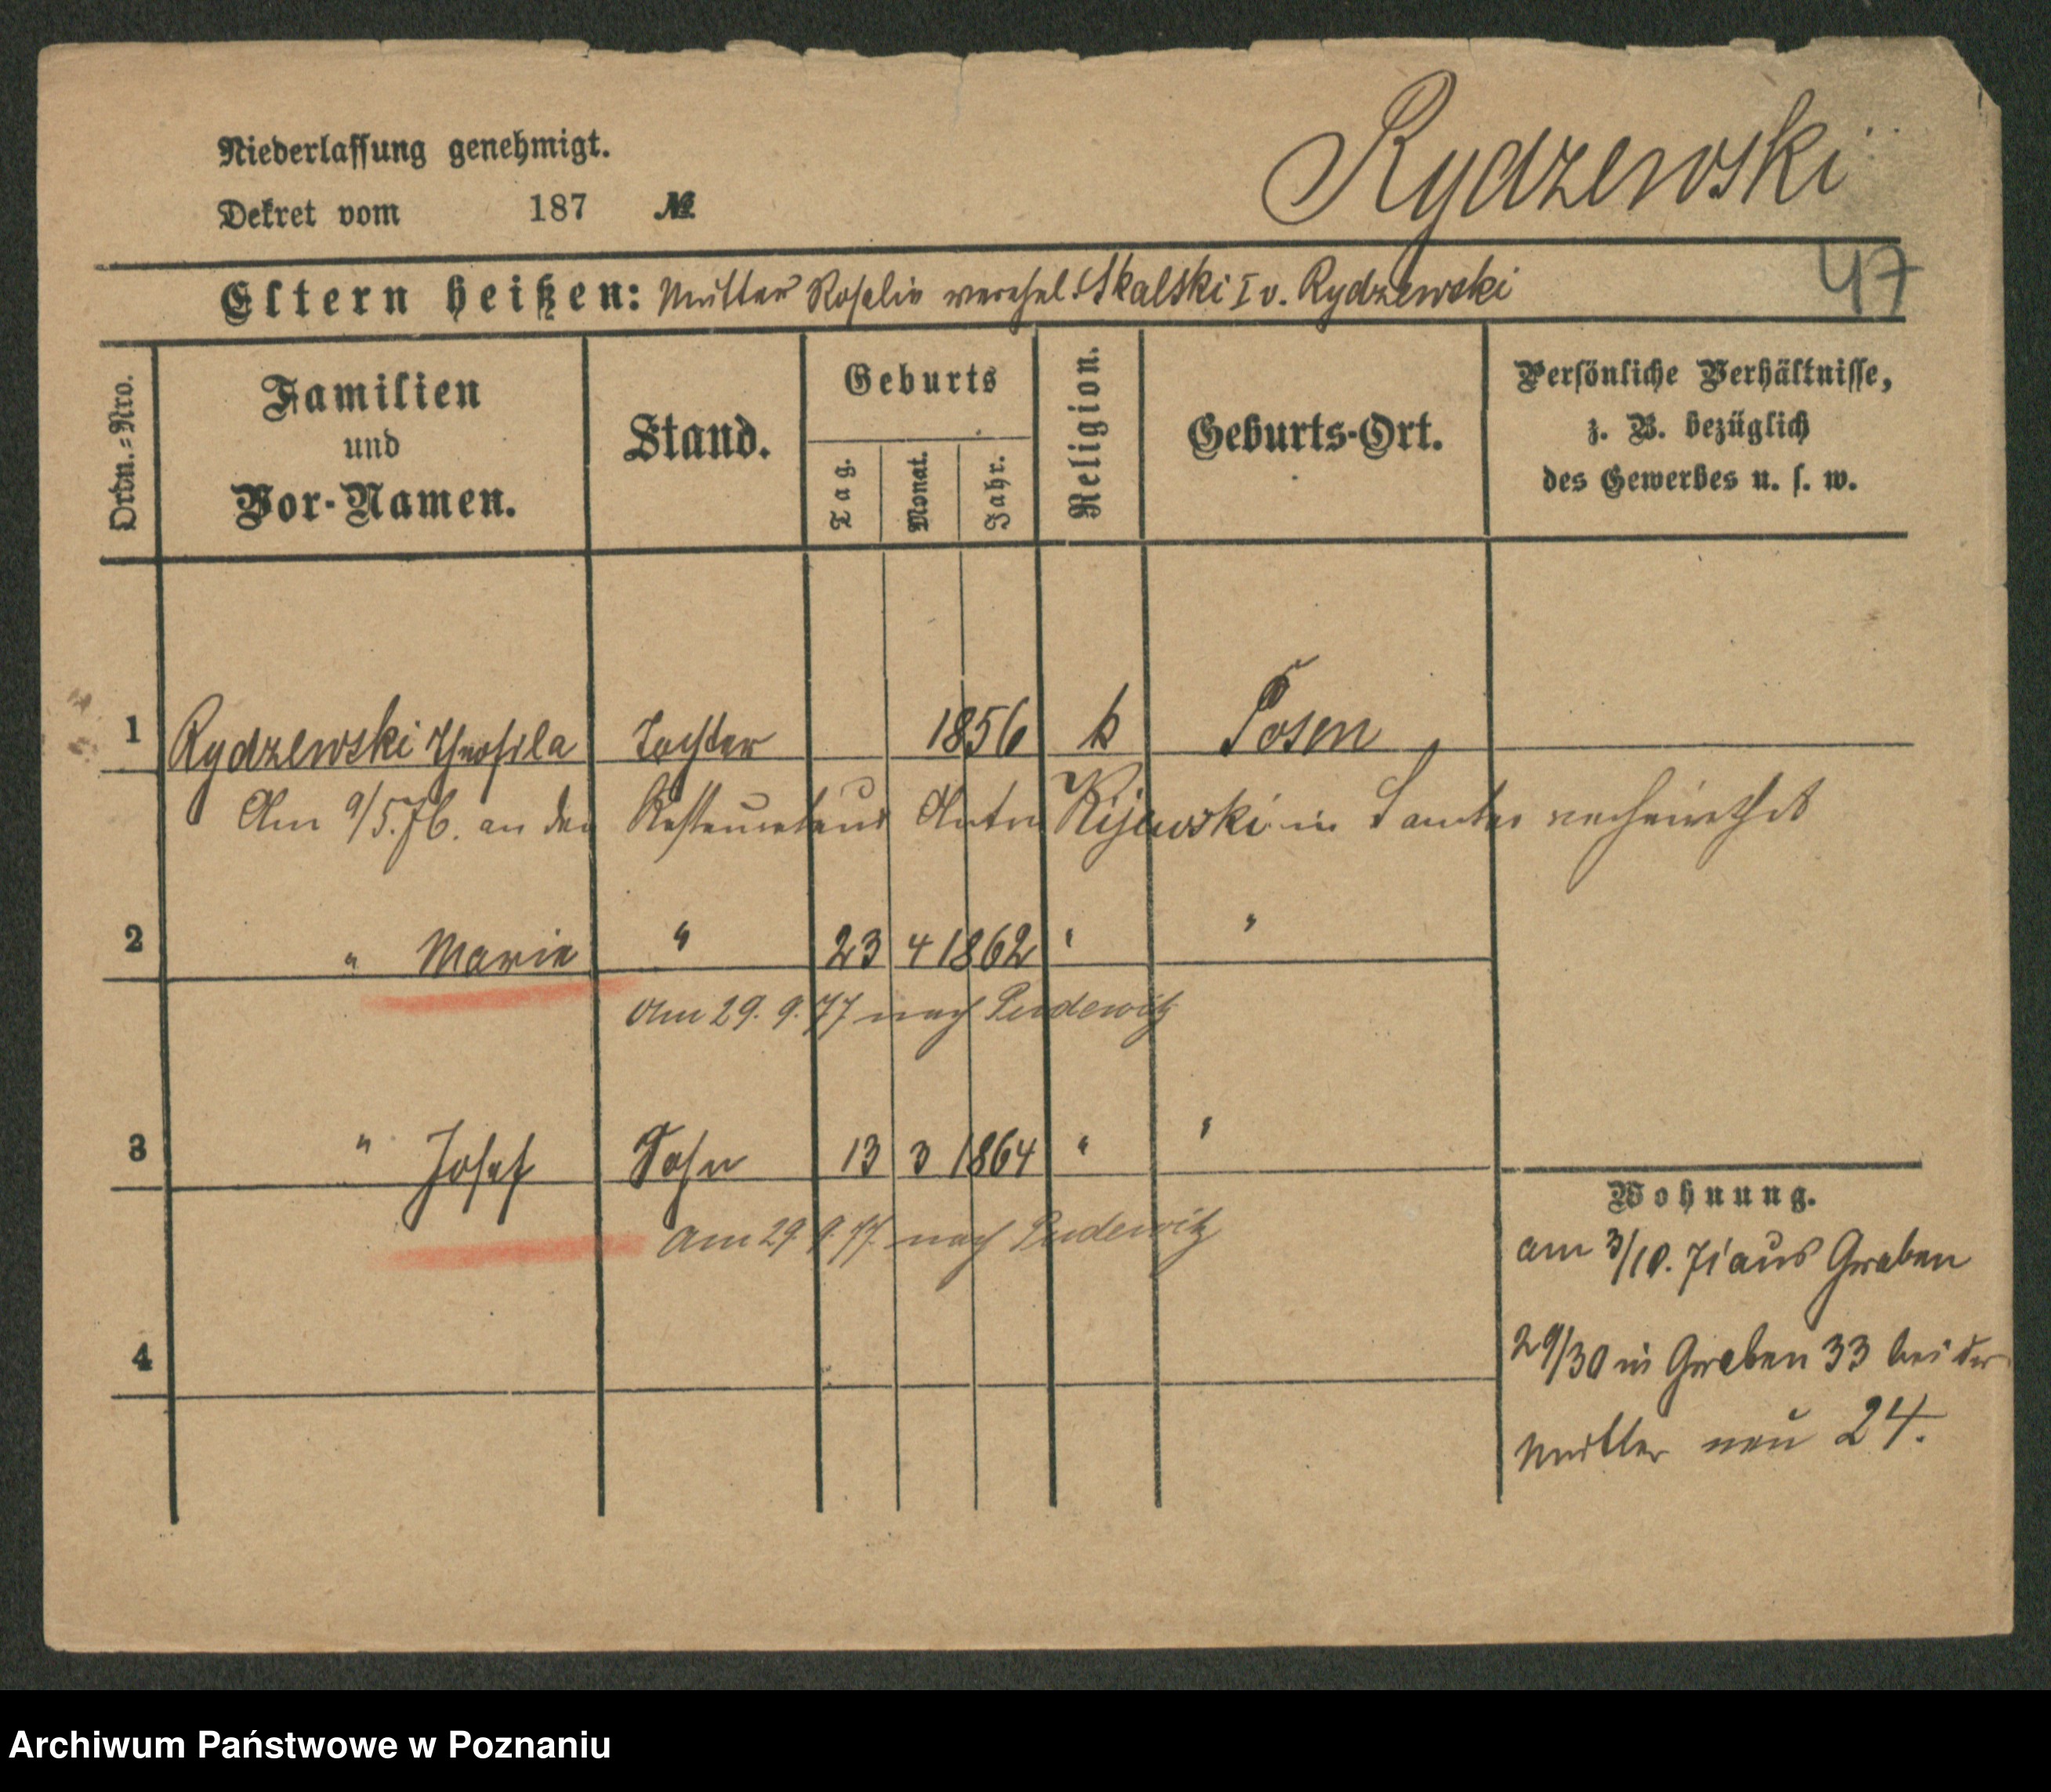 Niederlassung genehmigt.
Rydzewski
Dekret vom 187 №
47
Eltern heißen: Mutter Rosalie verehel. Skalski I v. Rydzewski
Ordn.=Nro.
Familien
und
Vor-Namen.
Stand.
Geburts
Tag.
Monat.
Jahr.
Religion.
Geburts-Ort.
Persönliche Verhältnisse,
z. B. bezüglich
des Gewerbes u. s. w.
1 Rydzewski Theofila Tochter 1856 k Posen
Am 9/5. 76. an den Restaurateur Anton Kijewski in Samter verheirathet
2 " Marie " 23 4 1862 " "
Am 29. 9. 77 nach Pudewitz
3 " Josef Sohn 13 3 1864 " "
Am 29 9. 77. nach Pudewitz
4
Wohnung.
am 3/10. 71 aus Graben
29/30 in Graben 33 bei der
Mutter neu 24.
Archiwum Państwowe w Poznaniu